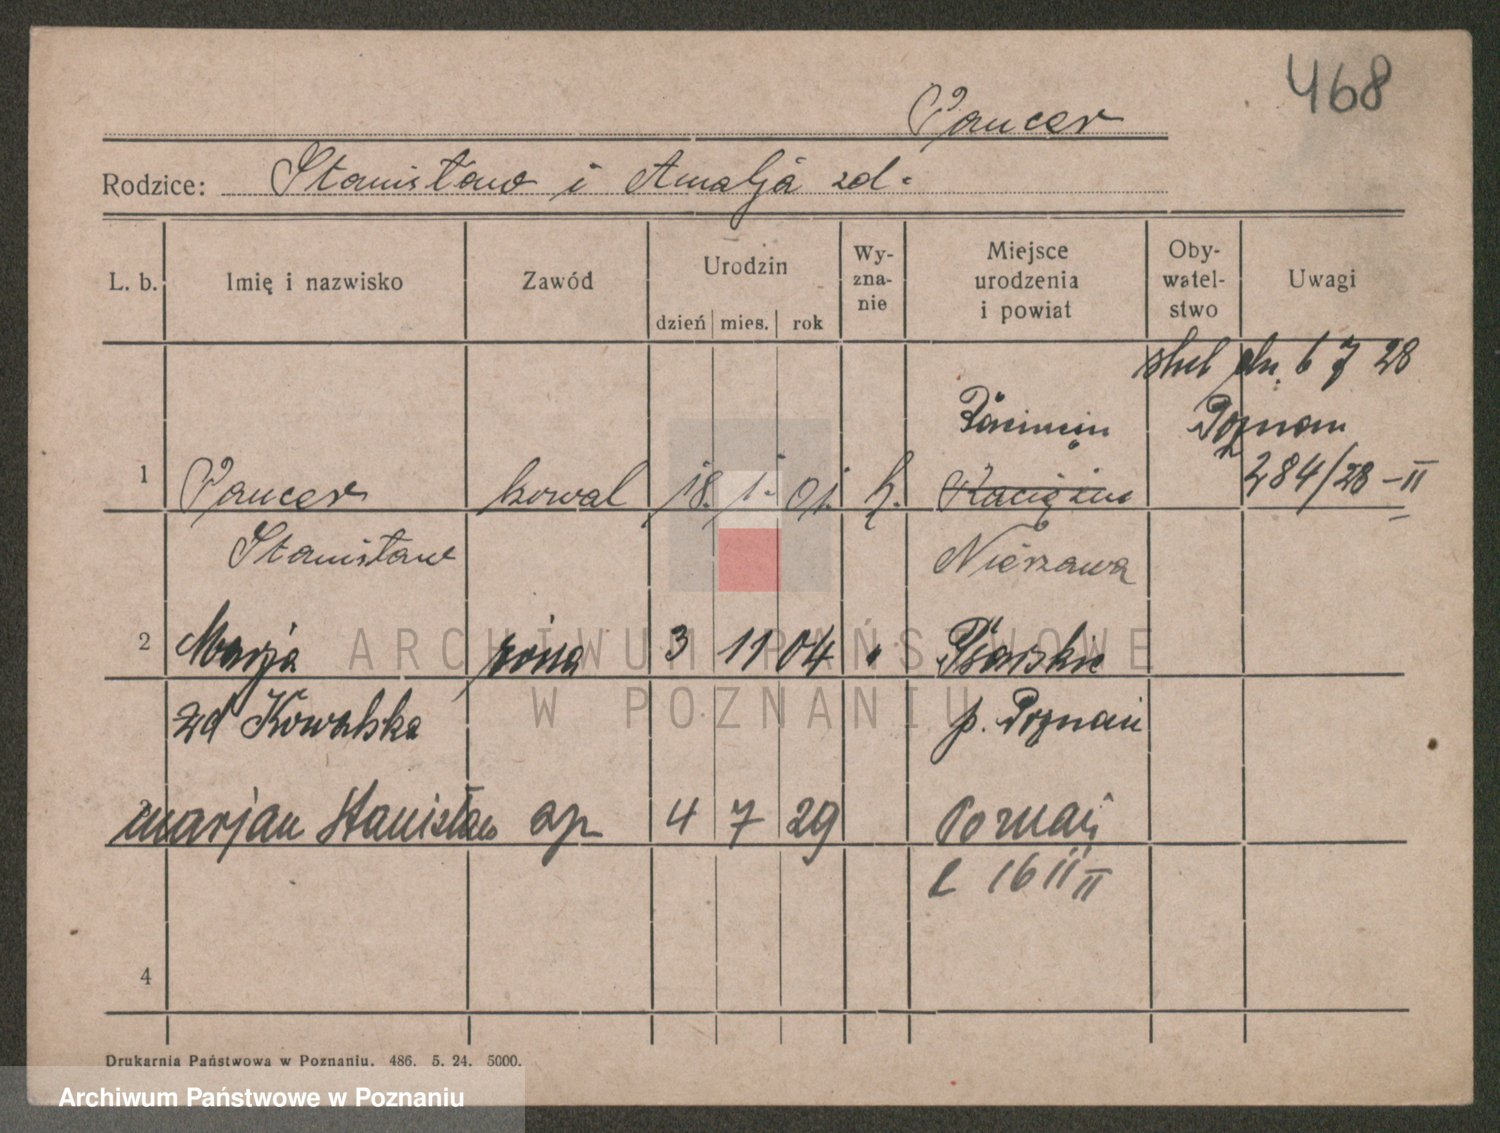 468
Pancer
Rodzice: Stanisław i Amalja zd.
L. b.
Imię i nazwisko
Zawód
Urodzin
dzień mies. rok
Wy-
zna-
nie
Miejsce
urodzenia
i powiat
Oby-
watel-
stwo
Uwagi
ślub dn. 6 7 28
Poznan
284/28 - II
1 Pancer kowal 18. 1. 01.
Stanisław Nieszawa
2 Marja żona 3 11 04 " Psarskie
zd Kowalska p. Poznań
marjan Stanisław 4 7 29 Poznań
16 II
4
Drukarnia Państwowa w Poznaniu. 486. 5. 24. 5000.
ARCHIWUM PAŃSTWOWE
W POZNANIU
Archiwum Państwowe w Poznaniu